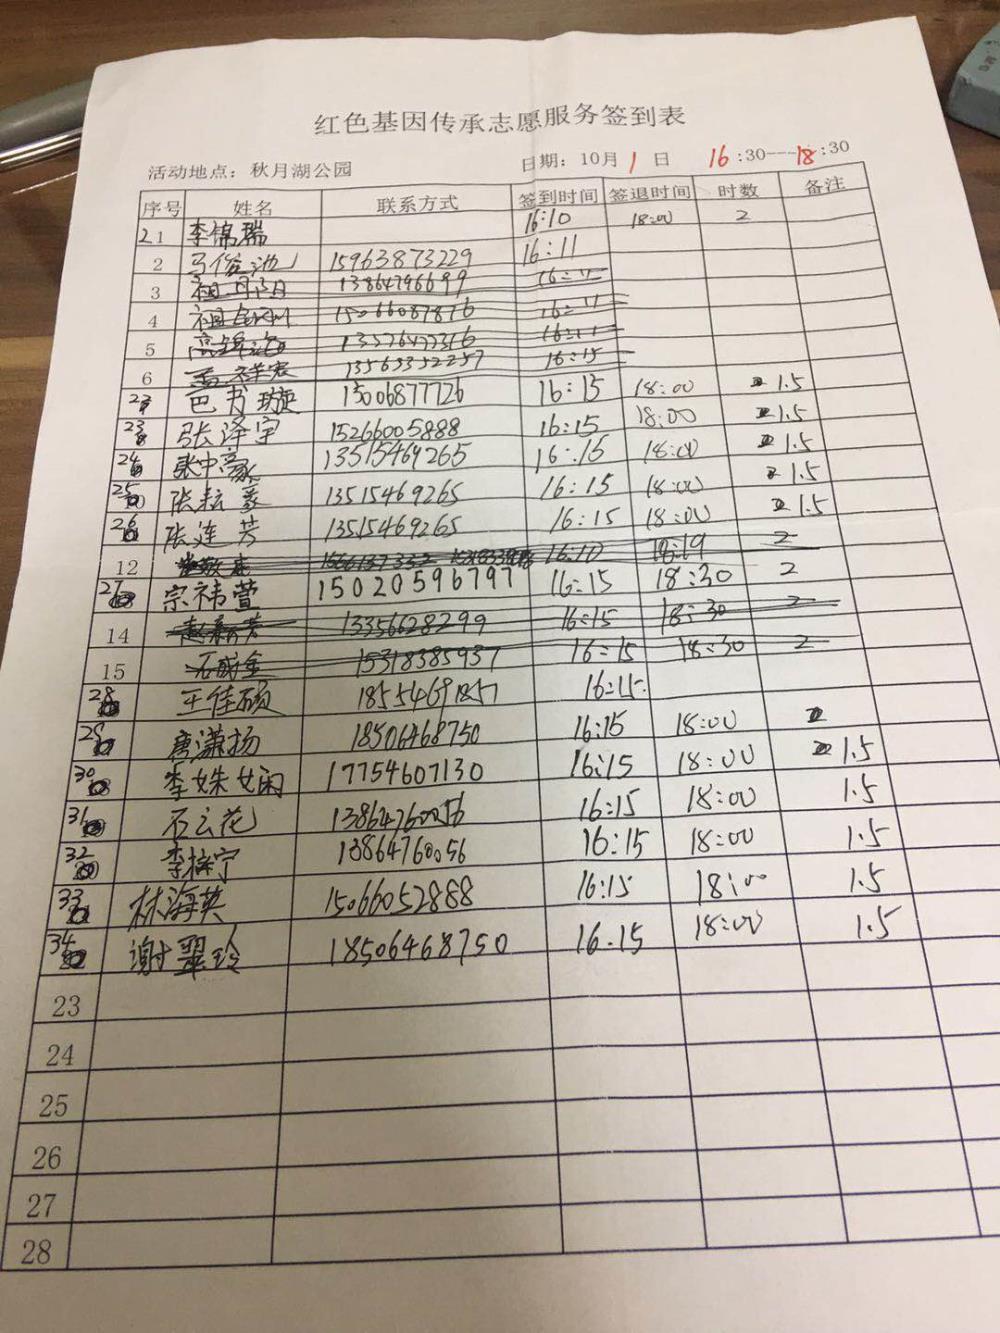 红色基因传承志愿服务签到表
活动地点：秋月湖公园 日期：10月1日 16:30---18:30
序号 姓名 联系方式 签到时间 签退时间 时数 备注
21 李锦瑞 16:10 18:00 2
2 马俊池 15963873229 16:11
3 13864796699 16:11
4 15066087876 16:11
5 16:11
6 13563352257 16:15
22 巴书璇 15006877726 16:15 18:00 1.5
23 张泽宇 15266005888 16:15 18:00 1.5
24 张中豪 13515469265 16:15 18:00 1.5
25 张耘豪 13515469265 16:15 18:00 1.5
26 张连芳 13515469265 16:15 18:00 1.5
12 16:10 18:19 2
27 宗祎萱 15020596797 16:15 18:30 2
14 13356628299 16:15 18:30 2
15 石成金 15318385937 16:15 18:30 2
28 王佳硕 18554691857 16:15
29 唐潇扬 18506468750 16:15 18:00
30 李姝娴 17754607130 16:15 18:00 1.5
31 石云花 13864760056 16:15 18:00 1.5
32 李梓宁 13864760056 16:15 18:00 1.5
33 林海英 15066052888 16:15 18:00 1.5
34 谢翠玲 18506468750 16.15 18:00 1.5
23
24
25
26
27
28